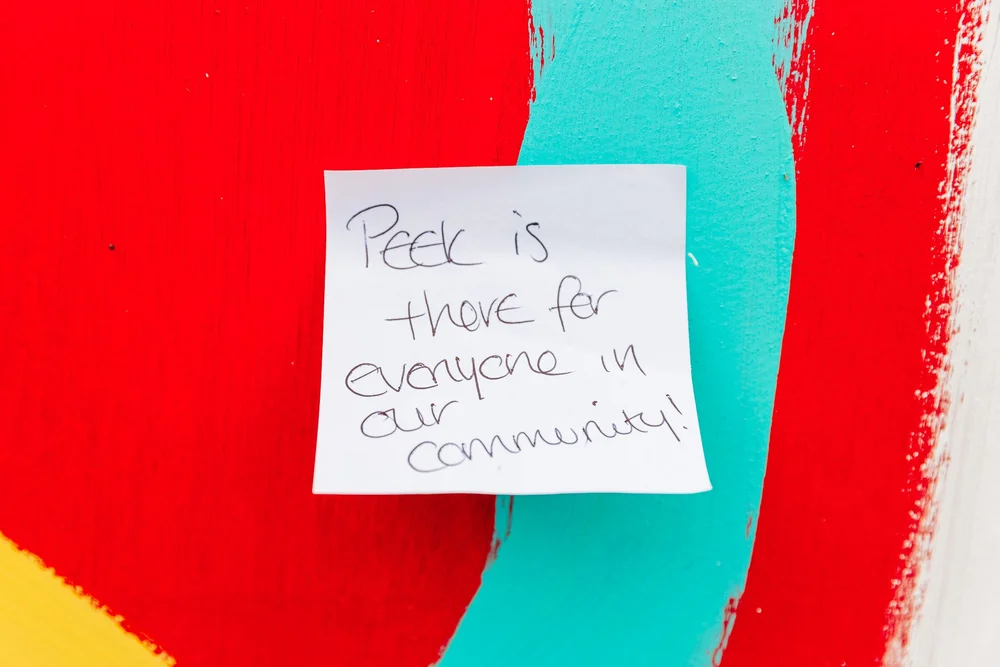 Peek is
there for
everyone in
our
community!